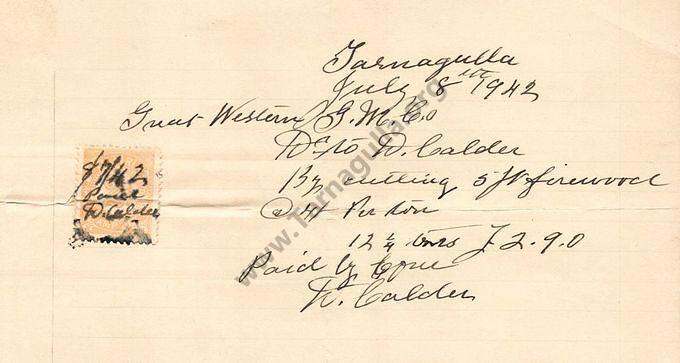 Tarnagulla
July 8th 1942
Great Western G.M.Co
Dr to D. Calder
By cutting 5 ft firewood
@ 4/- Per ton
12 1/4 tons £2.9.0
Paid by
D. Calder
8/7/42
Paid
D. Calder
www.Tarnagulla.org